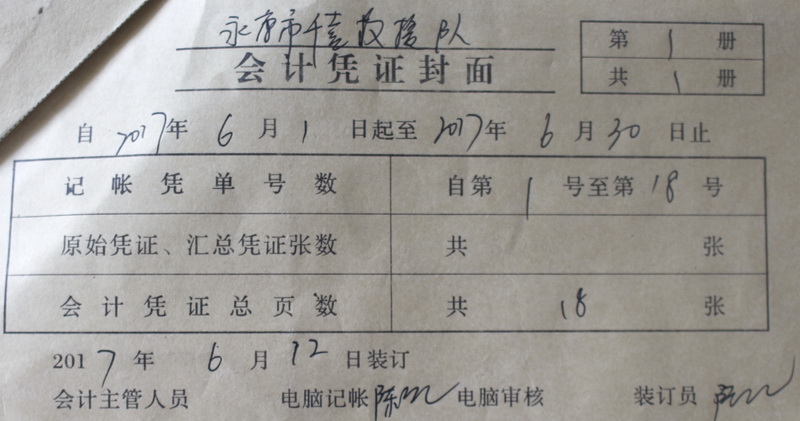 永康市千喜救援队
会计凭证封面
第 1 册
共 1 册
自 2017年 6 月 1 日起至 2017年 6 月 30 日止
记帐凭单号数 自第 1 号至第 18 号
原始凭证、汇总凭证张数 共 张
会计凭证总页数 共 18 张
2017 年 6 月 12 日装订
会计主管人员 电脑记帐 陈 电脑审核 装订员